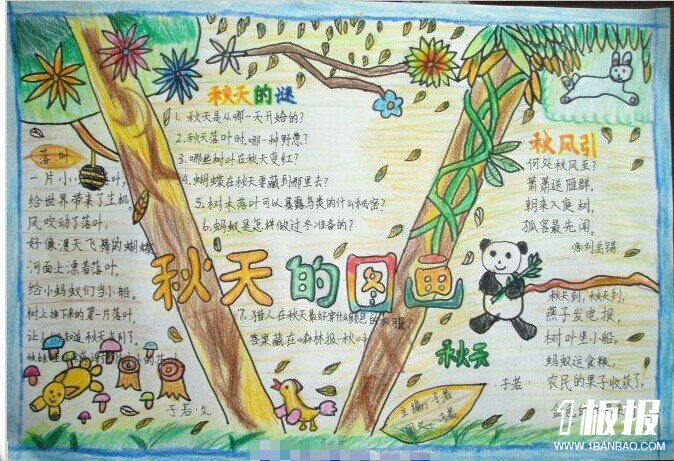 秋天的图画
落叶
一片小
落叶,
给世界带来了生机
风吹动了落叶,
好像漫天飞舞的蝴蝶
河面上漂着落叶,
给小蚂蚁们当小船。
树上掉下来的第一片落叶,
让
知道秋天来到了,
子若 文
秋天的谜
1. 秋天是从哪一天开始的?
2. 秋天落叶时,哪一种
3. 哪些树叶在秋天变红?
4. 蝴蝶在秋天要藏到哪里去?
5. 树木落叶可以暴露鸟类的什么秘密?
6. 蚂蚁是怎样做过冬准备的?
7. 猎人在秋天最好穿什么颜色的衣服
答案藏在《森林报·秋》
秋风引
何处秋风至?
萧萧送雁群,
朝来入庭树,
孤客最先闻。
唐 刘禹锡
秋天
秋天到,秋天到,
燕子发电报,
树叶坐小船,
蚂蚁运食粮,
农民的果子收获了,
子若
主编:子若
图文:子若
1板报
WWW.1BANBAO.COM